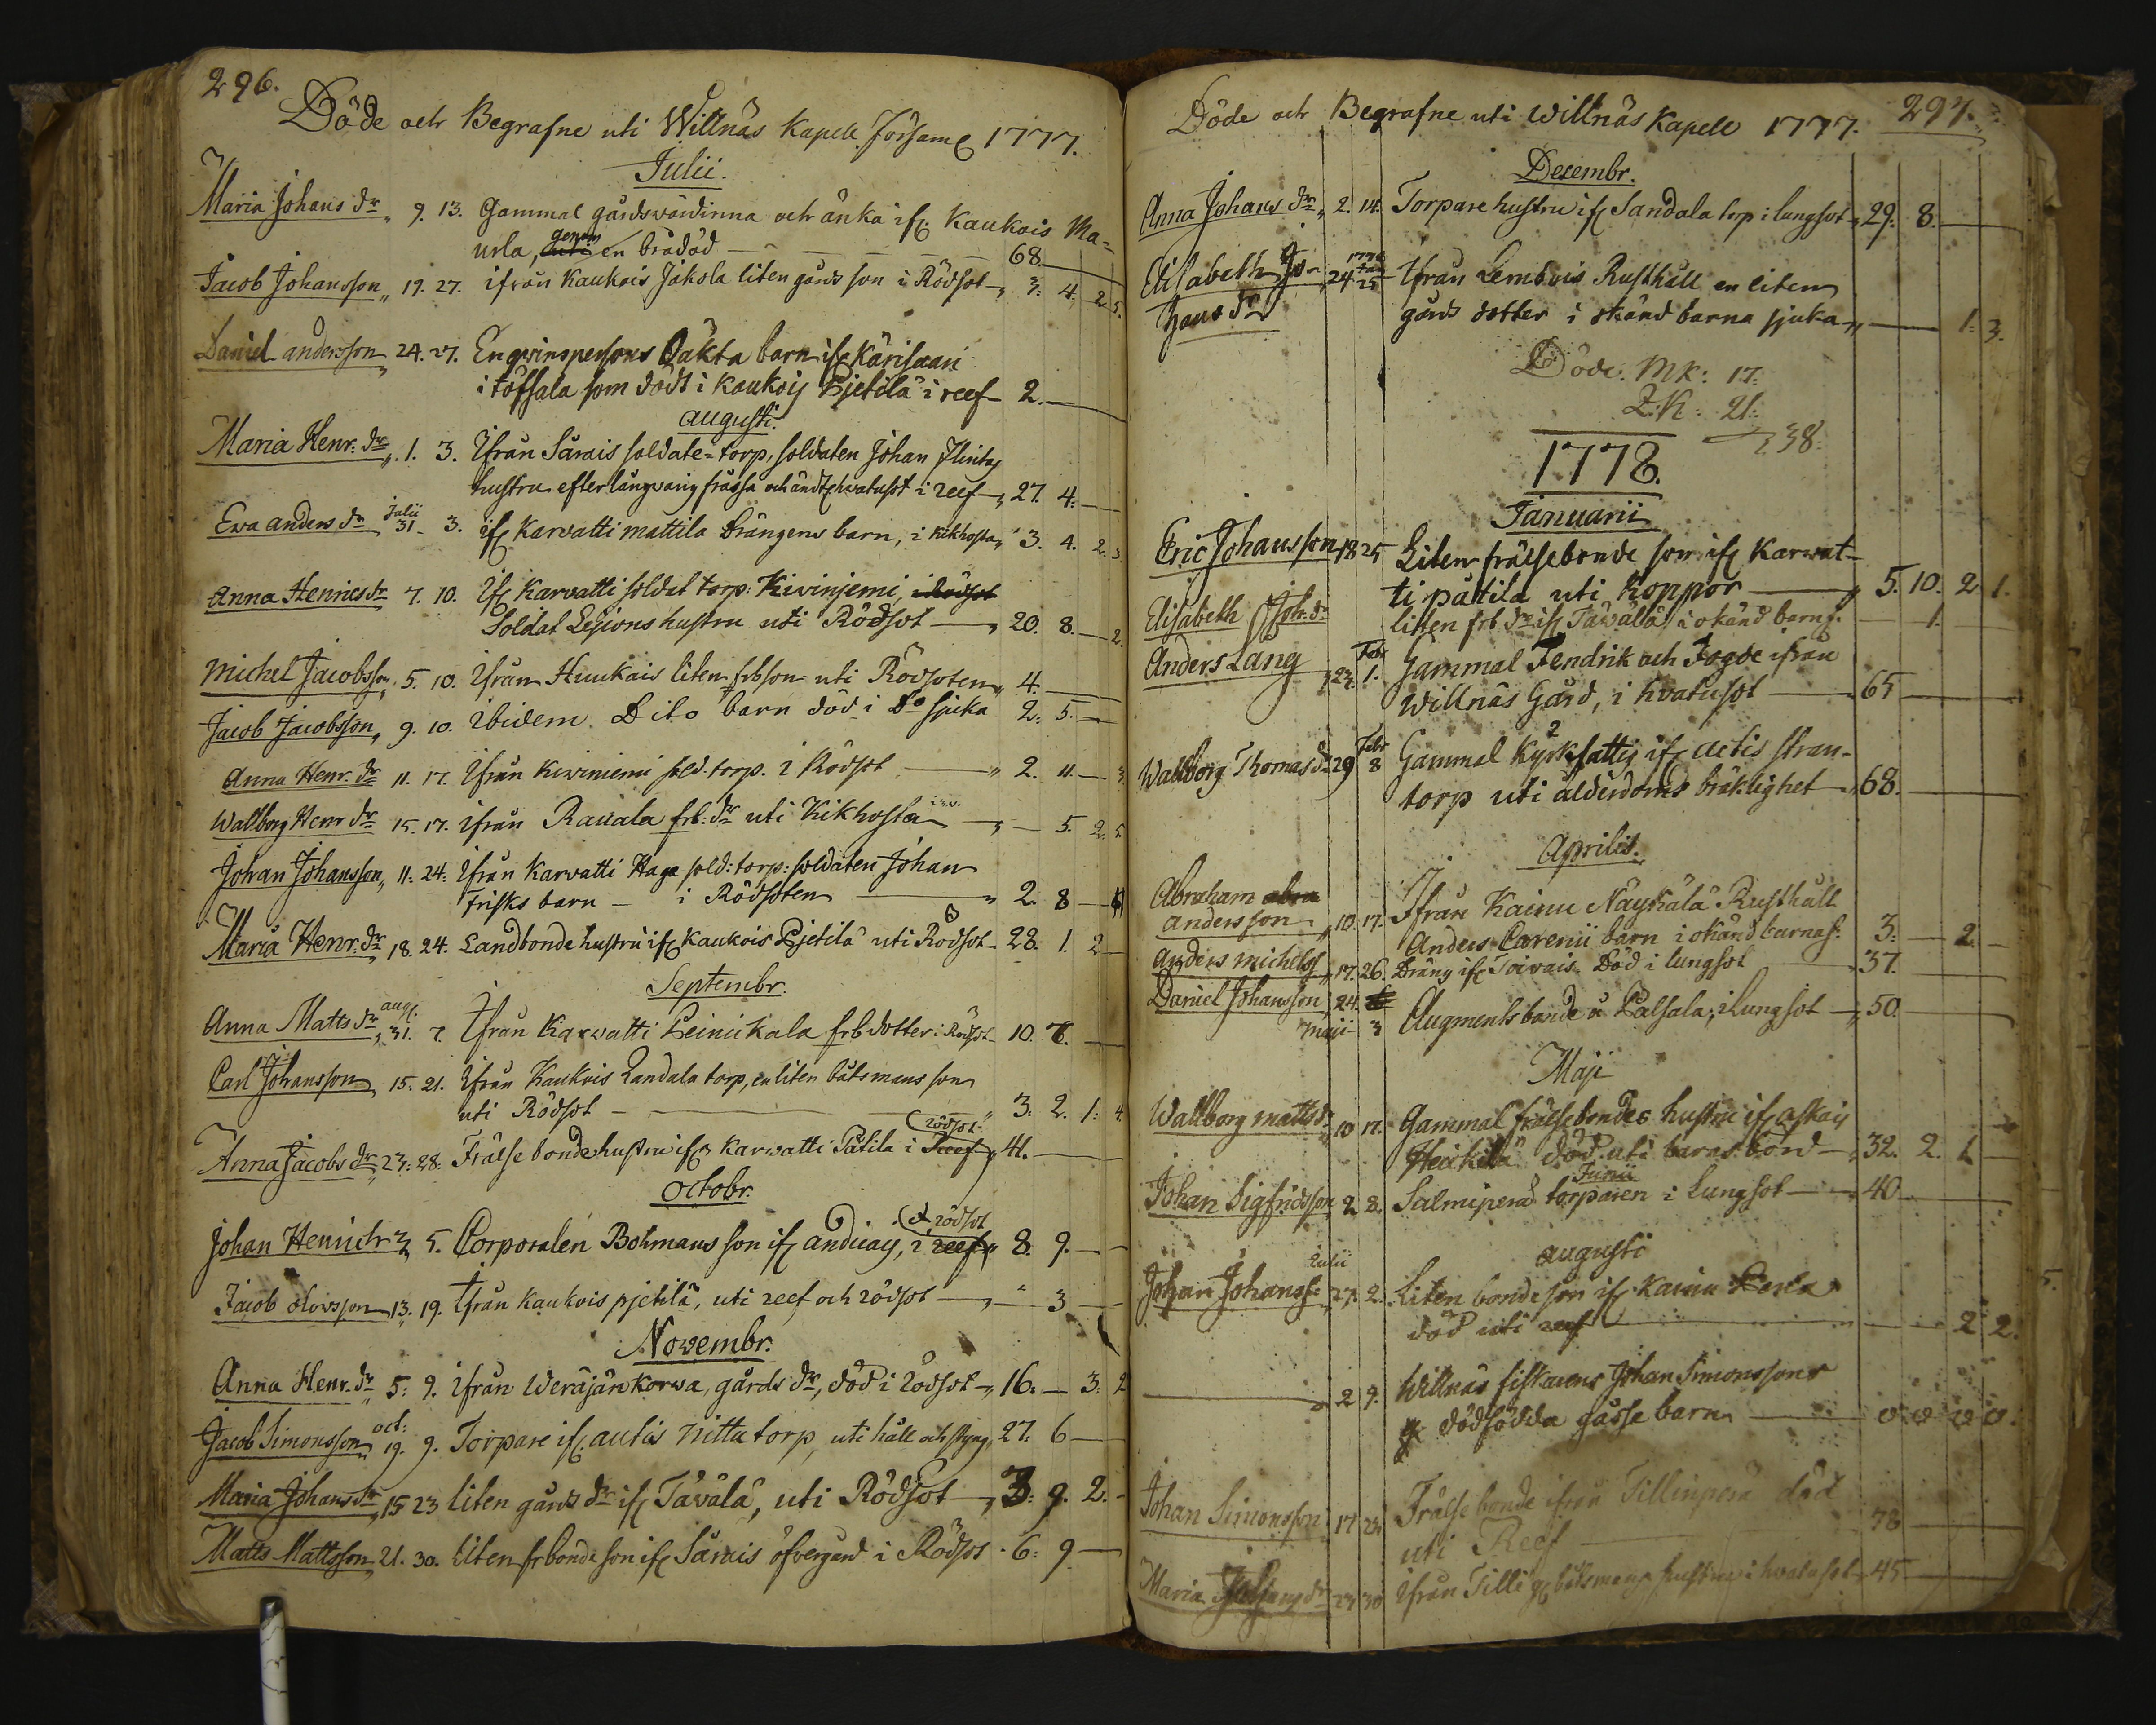 296.
Döde och Begrafne uti Willnäs Kapell Församl 1777.
Julii.
Maria Johans dr 9. 13. Gammal gårdswärdinna och änka if: Kaukois Ma=
urla, genom en brådöd 68
Jacob Johansson 19. 27. ifrån Kaukois Jaksla liten gårds son i Rödsot 3: 4. 2 5.
Daniel andersson 24. 27. En qwinspersons oäkta barn if: Kärisaari
i töfsala som dödt i Kaukois Pjetilä i reef 2.
augusti.
Maria Henr: dr 1. 3. Ifrån Särais soldate=torp, soldaten Johan Flintas
hustru efter långvarig frässa och ändtl: hvatusot i reef 27. 4.
Eva anders dr Julii 31. 3. if: Karvatti mattila drängens barn, i kikhosta 3. 4. 2. 3
Anna Henrics dr 7. 10. If: Karvatti soldat torp: Kivinjemi, i Rödsot
Soldat Legions hustru uti Rödsot 20. 8. 2.
Michel Jacobsson 5. 10. Ifrån Huukais liten frb son uti Rödsoten 4.
Jacob Jacobsson 9. 10. Ibidem Dito barn död i Do sjuka 2: 5.
Anna Henr. dr 11. 17. Ifrån Kiwiniemi sold. torp. i Rödsot 2. 11. 3
Wallborg Henr dr 15. 17. ifrån Rauala frb: dr uti Kikhosta 5. 2. 5
Johan Johansson 11. 24: Ifrån Karvatti Haga sold: torp: soldaten Johan
Frisks barn i Rödsoten 2. 8
Maria Henr: dr 18. 24. Landbonde hustru if: Kaukois Pjetilä uti Rödsot 28. 1. 2
Septembr.
Anna Matts dr aug: 31. 7. Ifrån Karwatti Leinikala frb dotter i Rödsot 10. 7.
Carl Johansson 15. 21. Ifrån Kaukois Landala torp, en liten båtsmans son
uti Rödsot 3: 2. 1: 4
Anna Jacobs dr 23: 28: Frälse bonde hustru if: Karwatti Pätila i Reef rödsot 41.
Octobr.
Johan Henrichs 3 5. Corporalen Bohmans son if: andicais, i reef rödsot 8. 9.
Jacob olovsson 13. 19. ifrån Kaukois pjetilä, uti reef och rödsot 3
Novembr.
Anna Henr. dr 5: 9. ifrån Weräjänkorwa, gårds dr, död i Rödsot 16. 3: 2
Jacob Simonsson oct: 19. 9. Torpare if: autis nitta torp, uti håll och styng 27: 6
Maria Johans dr 15 23 liten gårds dr if: Täwälä, uti Rödsot 3: 9. 2.
Matts Mattsson 21. 30. Liten frbonde son if: Särais öfvergård i Rödsot 6: 9
Döde och Begrafne uti Willnäs Kapell 1777. 297.
Decembr.
Anna Johans dr 2. 14. Torpare hustru if: Sandala torp i lungsot 29: 8.
1778
Elisabeth Jo= 24 Jan 25 Ifrån Lembois Rusthåll en liten
hans dr gårds dotter i okänd barna sjuka 1: 3.
Döde. MK: 17:
Q.K: 21:
38:
1778.
Januarii
Eric Johansson 18 25 Liten frälsebonde son if: Karwat=
ti pätila uti Koppor 5. 10. 2 1.
Elisabeth Joh. dr liten frb dr if: Täwälä i okänd barns: 1.
Anders Lang 23. Febr 1. Gammal Fendrik och Fogde ifrån
Willnäs Gård, i hvatusot 65
Wallborg Thomas dr 29 Febr 8 Gammal Kyrkfattig if: aetis stran=
torp uti ålderdoms bräklighet 68.
Aprilis.
Abraham abra
andersson 10 17. Ifrån Kainu Näykälä Rusthåll
Anders Carenii barn i okänd barnas: 3: 2
anders michelss 17. 26. Dräng if: Toivais. Död i lungsot 37.
Daniel Johansson 24.
Maji 3 Augments bonde å Palsala, i Lungsot 50.
Maji
Wallborg matts dr 10 17. Gammal frälsebondes hustru if: askais
Heikilä död uti barns börd 32. 2. 1
Junii
Johan Sigfridsson 2 8. Salmiperä torparen i Lungsot 40
augusti
Julii
Johan Johanss: 27. 2. Liten bonde son if: Kainu
död uti reef 2 2.
2 9. Willnäs fiskarens Johan Simonssons
dödfödda gosse barn 0 0 0 0.
Johan Simonsson 17 23 Frälse bonde ifrån Tillinperä död
uti Reef 78
Maria Johans dr 23 30 ifrån Tilli båtsmans hustru i hvatusot 45